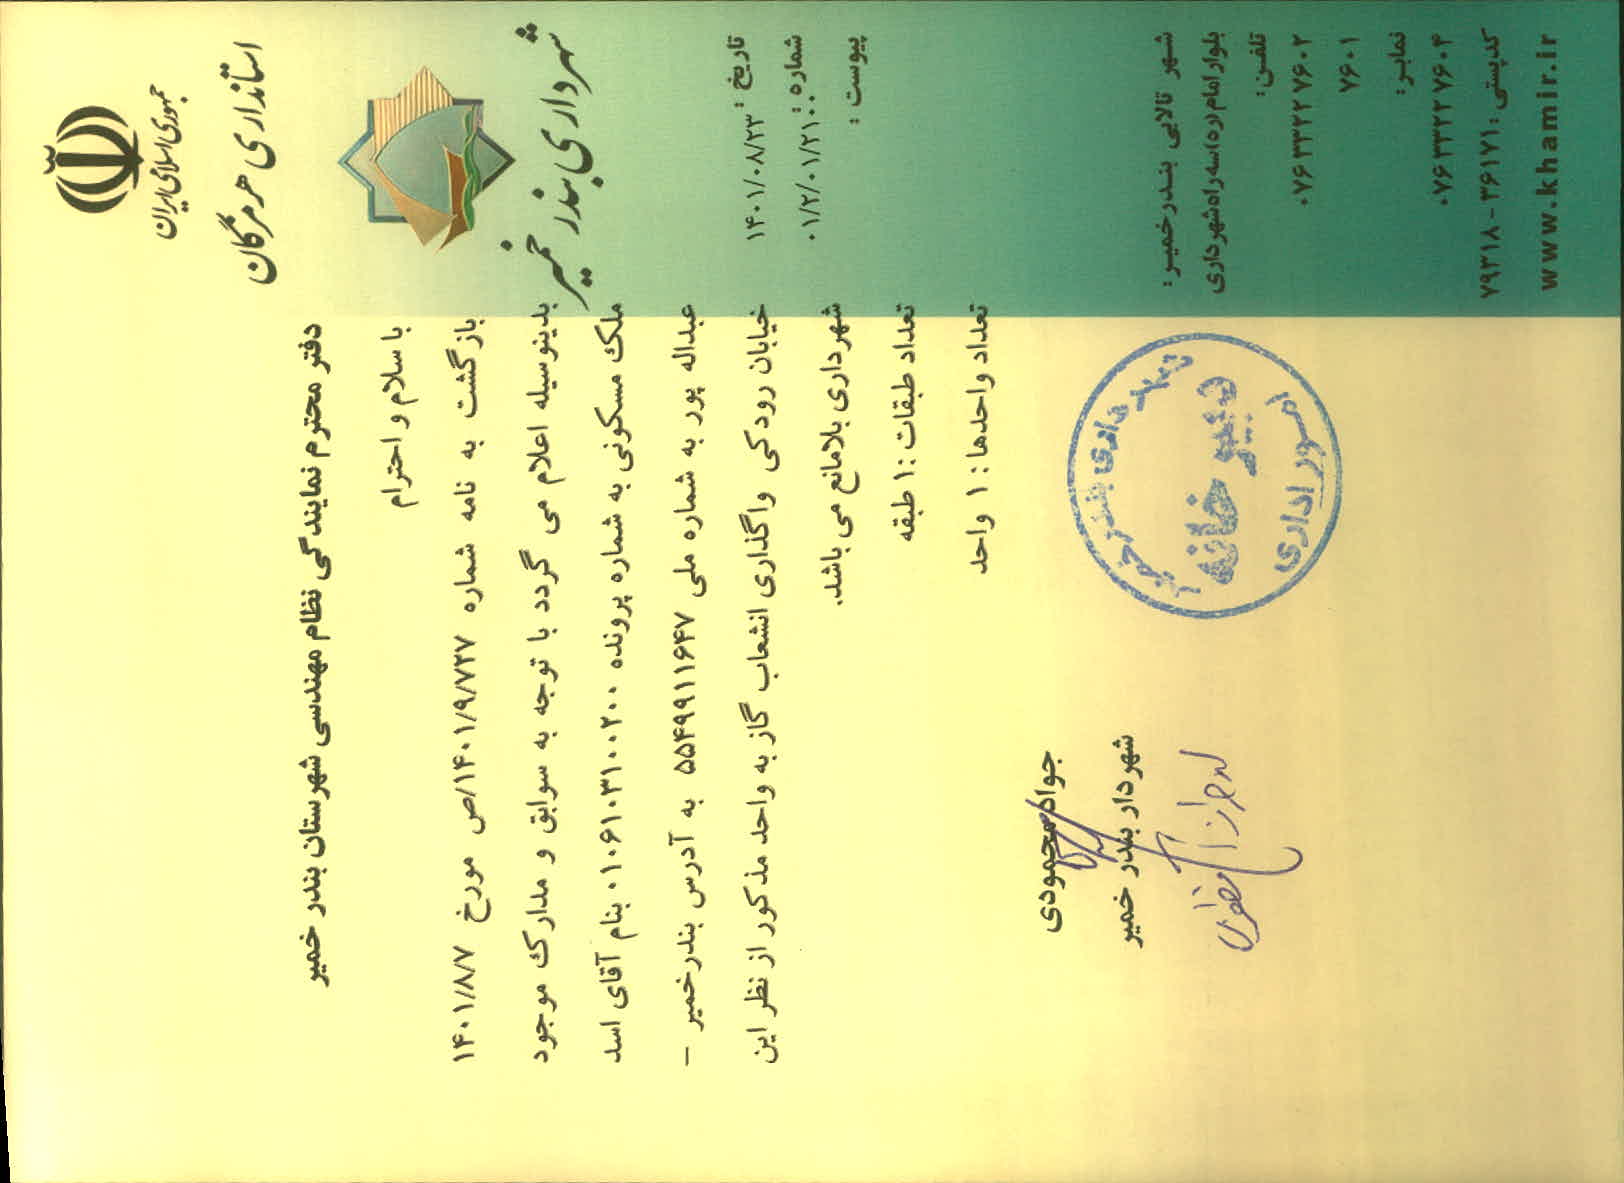 جمهوری اسلامی ایران
استانداری هرمزگان
شهرداری بندر خمیر
تاریخ : ۱۴۰۱/۰۸/۲۳
شماره : ۰۱/۲/۰۱/۲۱۰۰
پیوست :
دفتر محترم نمایندگی نظام مهندسی شهرستان بندر خمیر
با سلام و احترام
بازگشت به نامه شماره ۱۴۰۱/۹/۷۲۷/ص مورخ ۱۴۰۱/۸/۷
بدینوسیله اعلام می گردد با توجه به سوابق و مدارک موجود
ملک مسکونی به شماره پرونده ۰۱۰۶۱۰۳۱۰۰۲۰۰ بنام آقای اسد
عبداله پور به شماره ملی ۵۵۴۹۹۱۱۶۴۷ به آدرس بندرخمیر –
خیابان رودکی واگذاری انشعاب گاز به واحد مذکور از نظر این
شهرداری بلامانع می باشد.
تعداد طبقات :۱ طبقه
تعداد واحدها : ۱ واحد
جواد محمودی
شهردار بندر خمیر
شهرداری بندر خمیر
دبیرخانه
امور اداری
شهر تالابی بندرخمیر :
بلوار امام ره سه راه شهرداری
تلفن :
۰۷۶۳۳۲۲۷۶۰۲
۷۶۰۱
نمابر :
۰۷۶۳۳۲۲۷۶۰۴
کدپستی : ۳۶۱۷۱ - ۷۹۳۱۸
www.khamir.ir